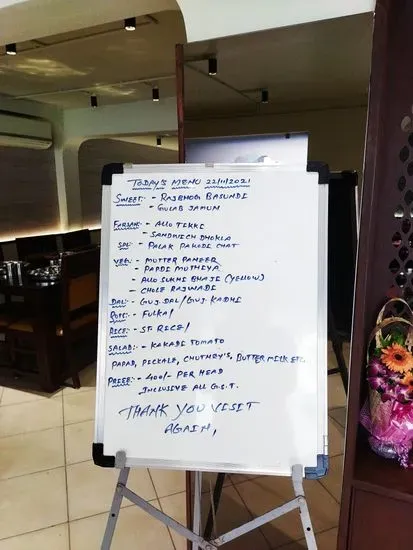 TODAY'S MENU 22/11/2021
SWEET:- RAJBHOG BASUNDI
- GULAB JAMUN
FARSAN:- ALLO TIKKI
- SANDWICH DHOKLA
SPL:- PALAK PAKODI CHAT
VEG:- MUTTER PANEER
- PAPDI MUTHIYA
- ALLO SUKHI BHAJI (YELLOW)
- CHOLE RAJWADI
DAL:- GUJ. DAL/GUJ. KADHI
ROTI:- FULKA/
RICE:- ST. RICE/
SALAD:- KAKADI TOMATO
PAPAD, PICKALE, CHUTNEY'S, BUTTER MILK ETC.
PRICE:- 400/- PER HEAD
INCLUSIVE ALL G.S.T.
THANK YOU VISIT
AGAIN,